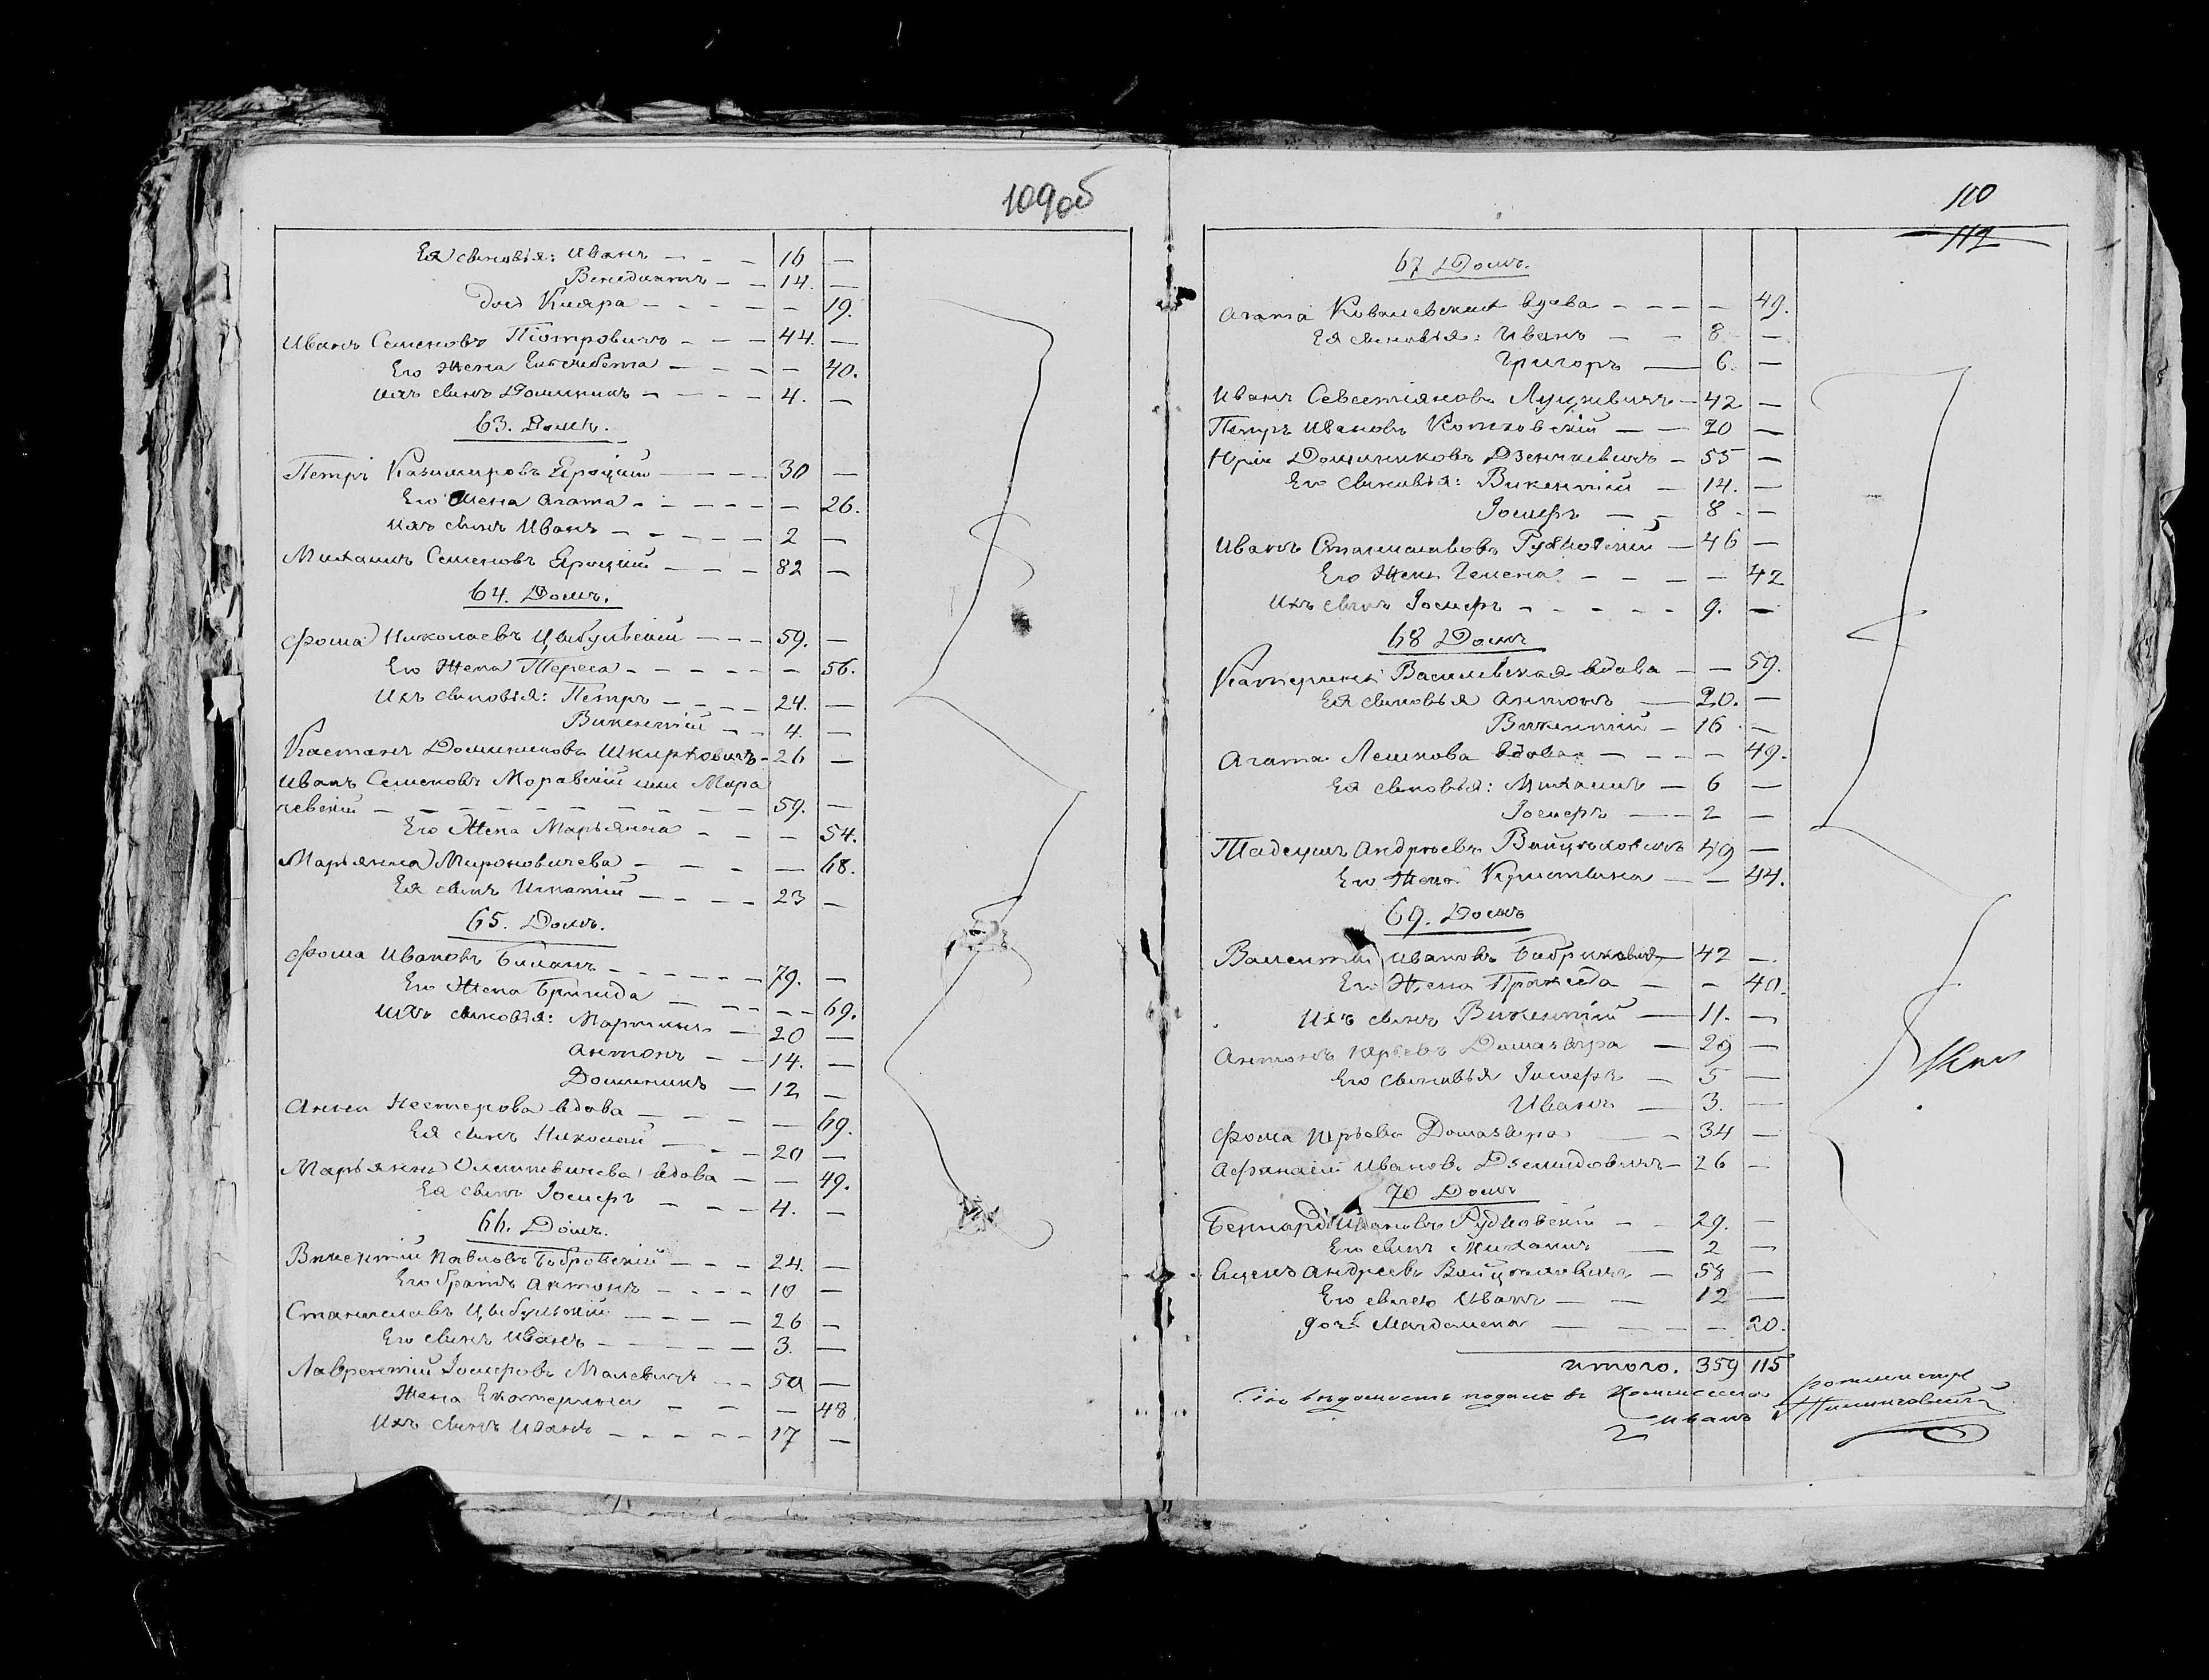 109 об
Ея сыновья: Иванъ — — — 16 —
Венедиктъ — — 14. —
дочь Кляра — — — — — 19.
Иванъ Семеновъ Піотровичъ — — — 44. —
Его Жена Елисабета — — — — 40.
Ихъ сынъ Доминикъ — — — — 4. —
63. Домъ.
Петръ Казимировъ Ероцкій — — — — 30 —
Его Жена Агата — — — — — 26.
Ихъ сынъ Иванъ — — — — — 2 —
Михаилъ Семеновъ Ероцкій — — — 82 —
64. Домъ.
Фома Николаевъ Цыбульскій — — — 59. —
Его Жена Тереса — — — — — — 56.
Ихъ сыновья: Петръ — — — — 24. —
Викентій — — 4. —
Каетанъ Доминиковъ — 26 —
Иванъ Семеновъ Моравскій или Мора
чевскій — — — — — — — 59. —
Его Жена Марьянна — — — 54.
Марьянна Мироновичева — — — — 68.
Ея сынъ Игнатій — — — — 23 —
65. Домъ.
Фома Ивановъ Биланъ — — — — — — 79. —
Его Жена Бригида — — — — — 69.
Ихъ сыновья: Мартинъ — 20 —
Антонъ — — 14. —
Доминикъ — 12 —
Анна Нестерова вдова — — — — 69.
Ея сынъ Николай — — — 20 —
Марьянна Олешкевичева вдова — — 49.
Ея сынъ Іосифъ — — — 4. —
66. Домъ.
Викентій Павловъ Бобровскій — — — 24. —
Его братъ Антонъ — — — — 10 —
Станиславъ Цыбульскій — — — — 26 —
Его сынъ Иванъ — — — — — 3. —
Лаврентій Іосифовъ Малевичъ — — 50 —
Жена Екатерина — — — 48
Ихъ сынъ Иванъ — — — — — 17 —
110
112
67 Домъ.
Агата Ковалевская вдова — — — — 49.
Ея сыновья: Иванъ — — 8. —
Григоръ — 6. —
Иванъ Севестіановъ Луцкевичъ — 42 —
Петръ Ивановъ Котковскій — — 20 —
Юрій Доминиковъ Дзенкевичъ — 55 —
Его сыновья: Викентій — 14. —
Іосифъ — — 8 —
Иванъ Станиславовъ Рудковскій — 46 —
Его Жена Гелена — — — — 42
Ихъ сынъ Іосифъ — — — — — 9. —
68 Домъ
Катерина Василевская вдова — — 59.
Ея сыновья Антонъ — 20. —
Викентій — 16 —
Агата Лешкова вдова — — — — 49.
Ея сыновья: Михаилъ — 6 —
Іосифъ — — 2 —
Тадеушъ Андреевъ Войцеховичъ 49 —
Его Жена Кристина — — 44.
69. Домъ
Валентій Ивановъ — 42 —
Его Жена Пракседа — — 40.
Ихъ сынъ Викентій — 11. —
Антонъ Юрьевъ Домашвра — 29 —
Его сыновья Іосифъ — 5 —
Иванъ — 3. —
Фома Юрьевъ — — 34 —
Афанасій Ивановъ Дземидовичъ — 26 —
70 Домъ
Бернардъ Ивановъ Рудковскій — — 29. —
Его сынъ Михаилъ — 2 —
Андреевъ Войцеховичъ — 58 —
Его сынъ Иванъ — — 12 —
дочь Магдалена — — — — 20.
итого. 359 115
Сію вѣдомость подалъ въ Коммиссію
Иванъ